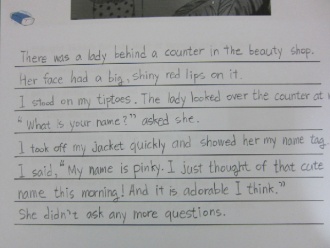 There was a lady behind a counter in the beauty shop.
Her face had a big, shiny red lips on it.
I stood on my tiptoes. The lady looked over the counter at
"What is your name?" asked she.
I took off my jacket quickly and showed her my name tag.
I said, "My name is pinky. I just thought of that cute
name this morning! And it is adorable I think."
She didn't ask any more questions.